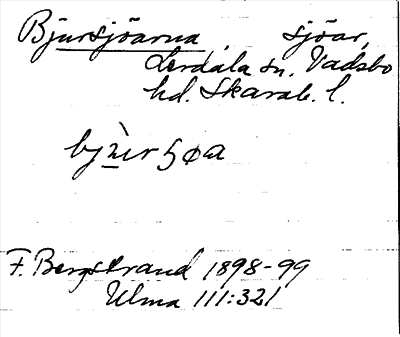 Bjursjöarna, sjöar,
Lerdala sn. Vadsbo
hd. Skarab. l.
F. Bergstrand 1898-99
Ulma 111:321